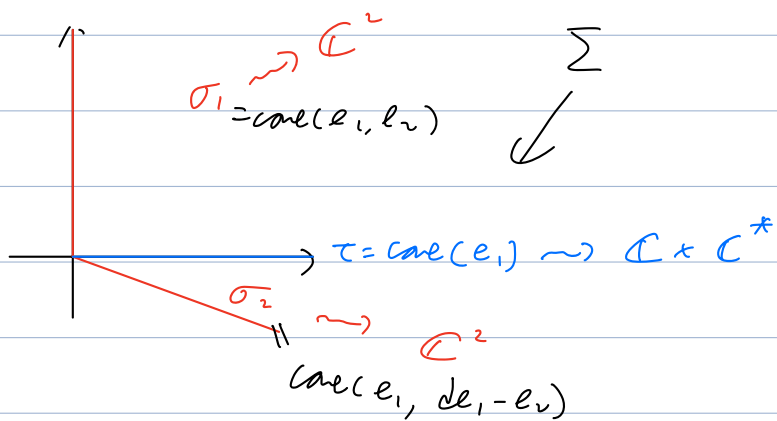 σ₁ ⇝ ℂ²
= cone(e₁, e₂)
Σ
τ = cone(e₁) ⇝ ℂ × ℂ*
σ₂ ⇝ ℂ²
cone(e₁, de₁ - e₂)